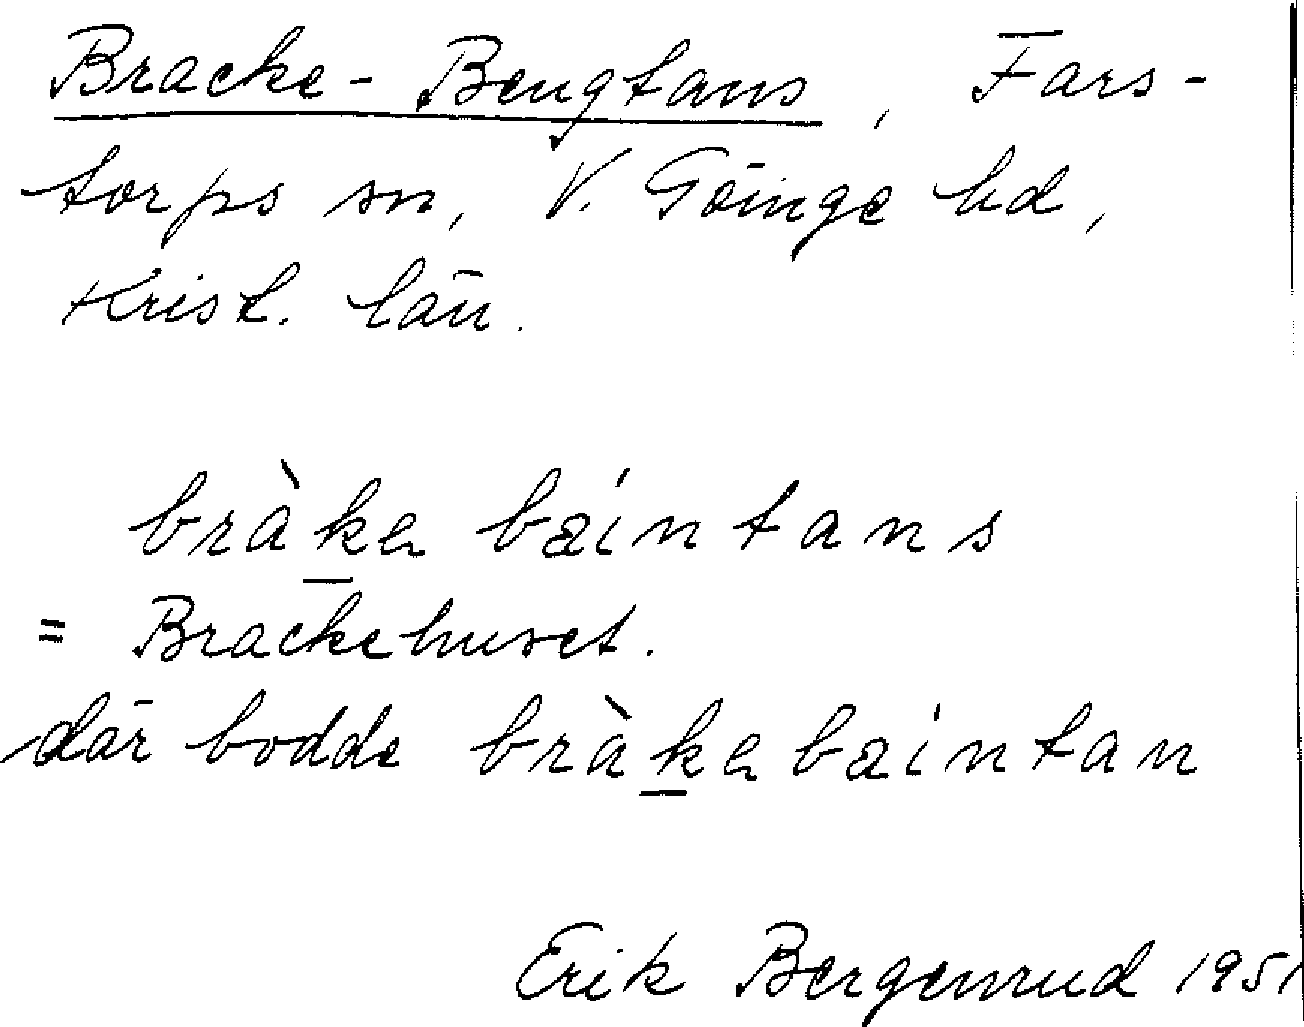 Bracke-Bengtans, Fars-
torps sn, V. Göinge hd,
Krist. län.
bràk̲ɐ bǽintans
= Brackehuset.
där bodde bràk̲ɐbǽintan
Erik Bergenrud 1951